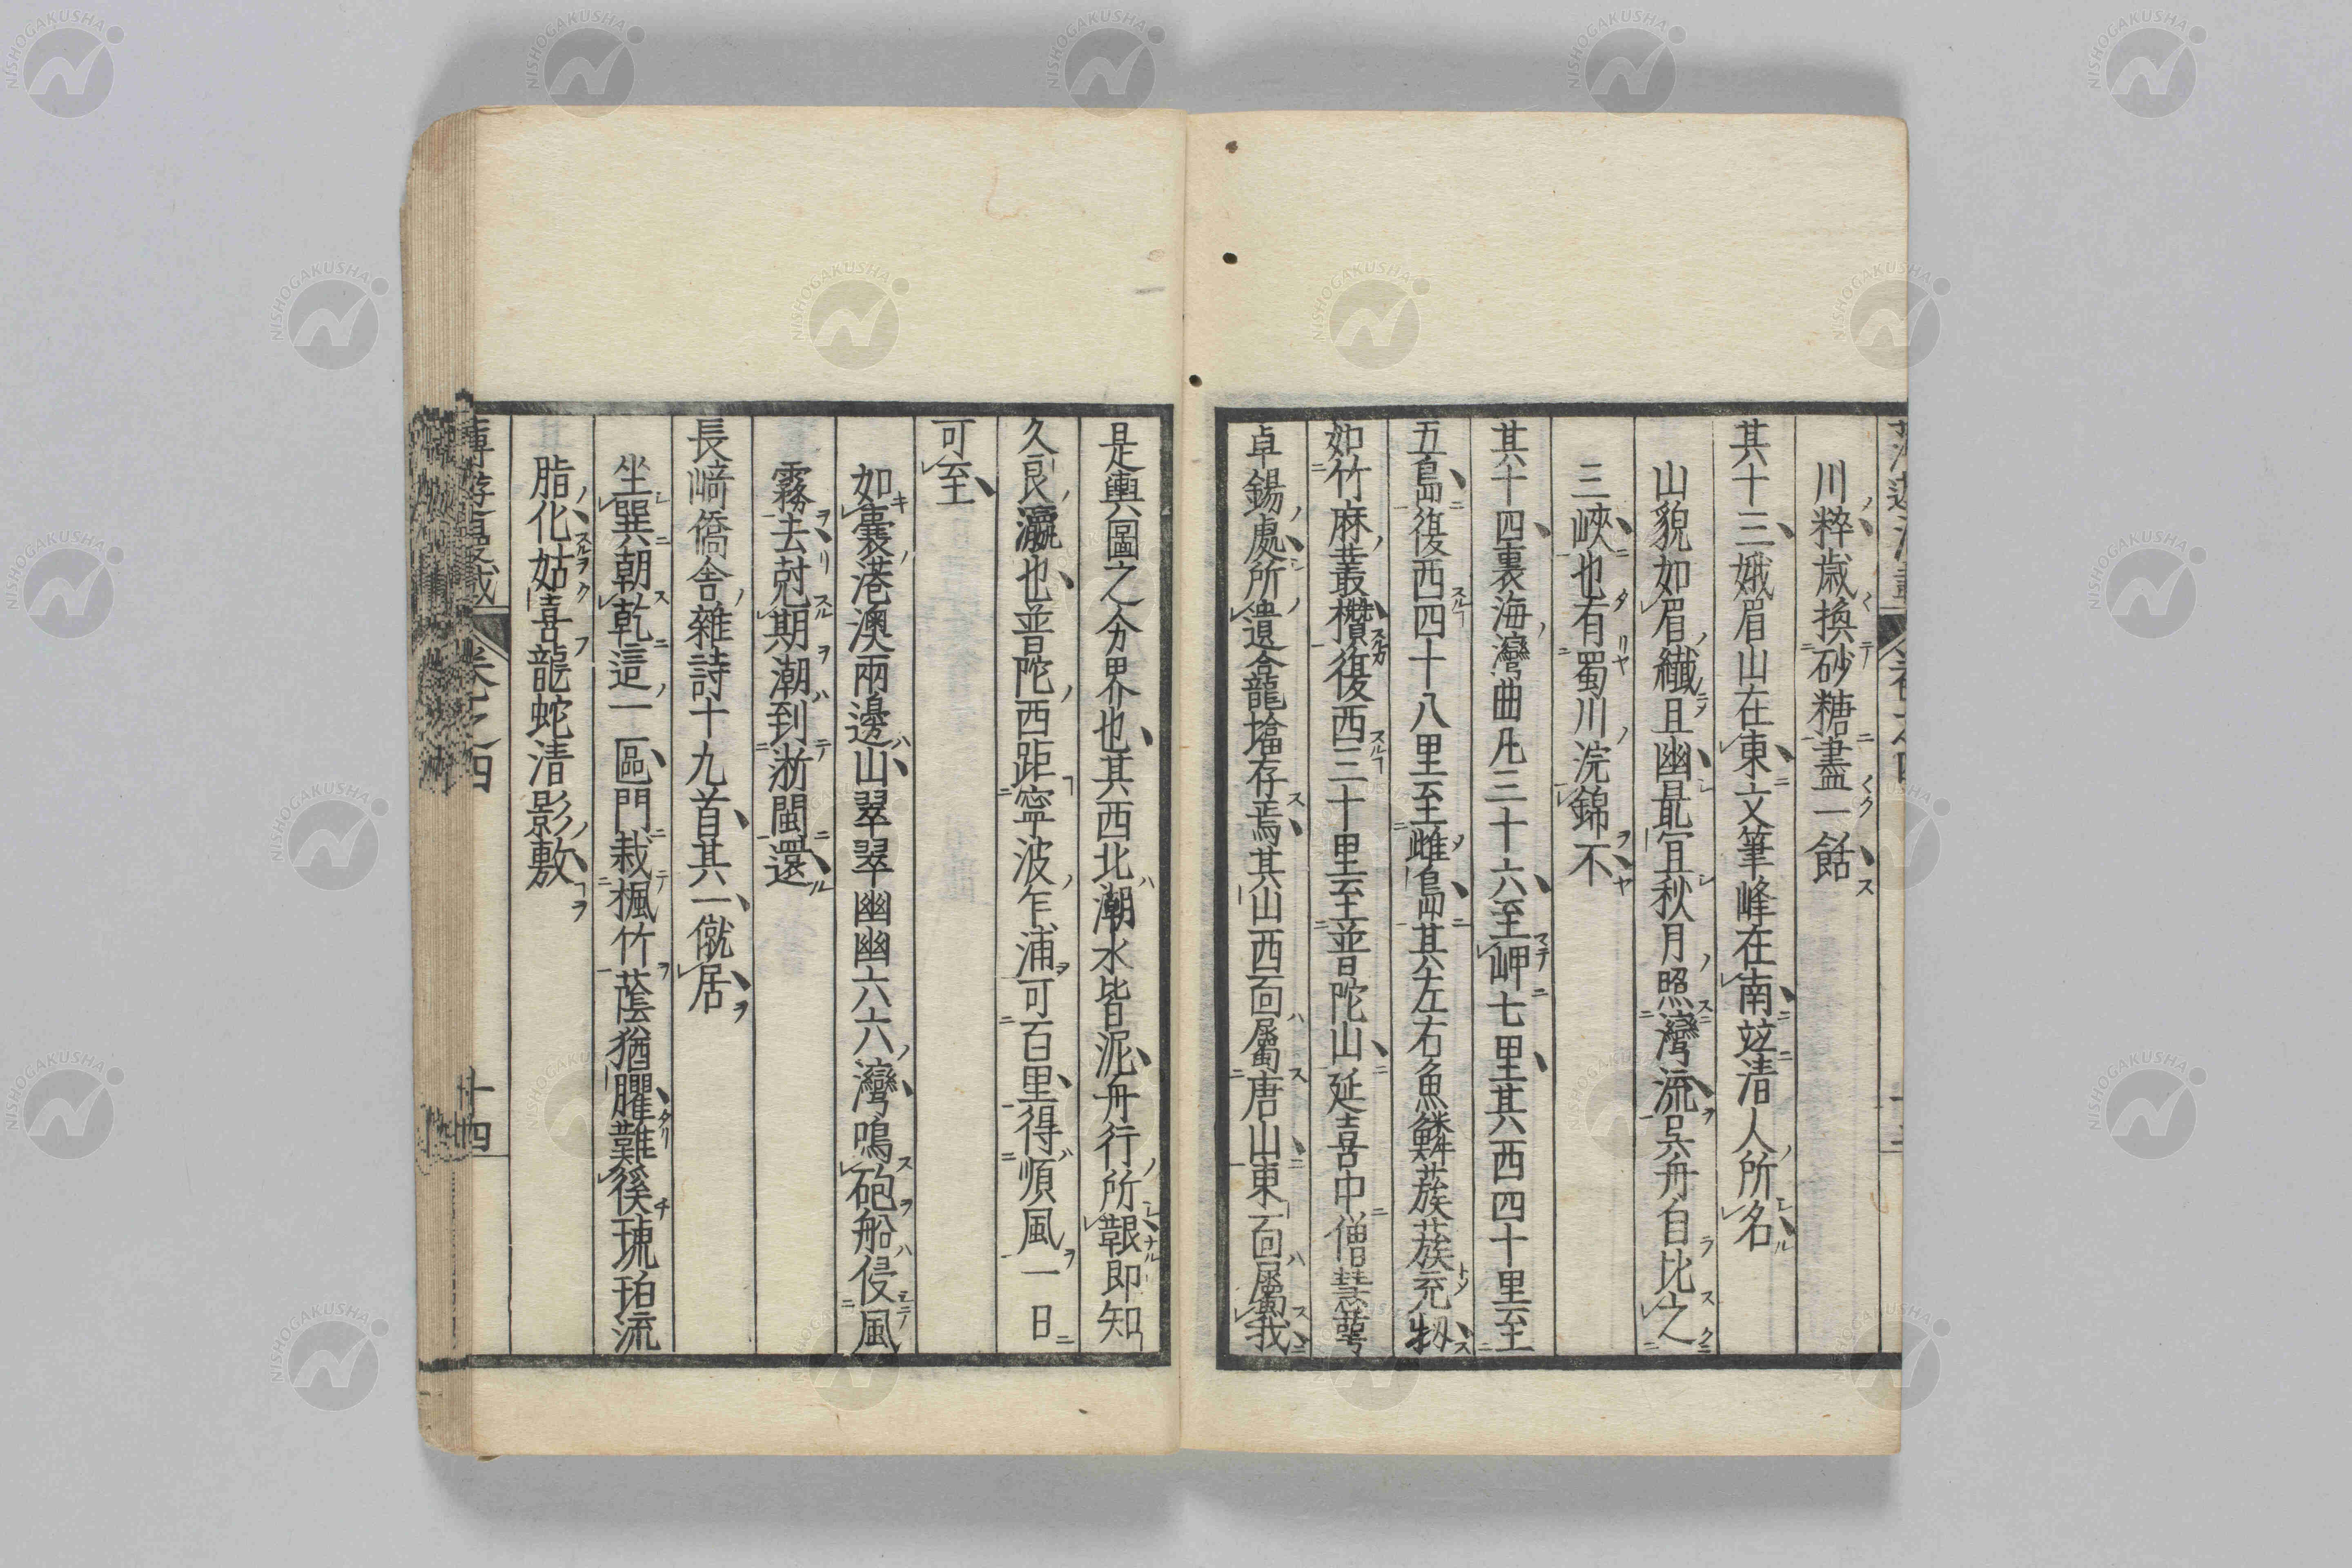 川粹歲換砂糖盡一餂
其十三娥眉山在東文筆峰在南竝清人所名
山貌如眉纖且幽最宜秋月照灣流吳舟自比之
三峽也有蜀川浣錦不
其十四裏海灣曲凡三十六至岬七里其西四十里至
五島復西四十八里至雌島其左右魚鱗蔟蔟充牣
如竹麻叢攢復西三十里至普陀山延喜中僧慧萼
卓錫處所遺合龍墖存焉其山西面屬唐山東面屬我
是輿圖之分界也其西北潮水皆泥舟行所艱即知
久良瀛也普陀西距寧波乍浦可百里得順風一日
可至
如囊港澳兩邊山翠翠幽幽六六灣鳴砲船侵風
霧去尅期潮到浙閩還
長﨑僑舍雜詩十九首其一僦居
坐巽朝乾這一區門栽楓竹蔭猶臞難徯琥珀流
脂化姑喜龍蛇清影敷
卷之四
十四
NISHOGAKUSHA